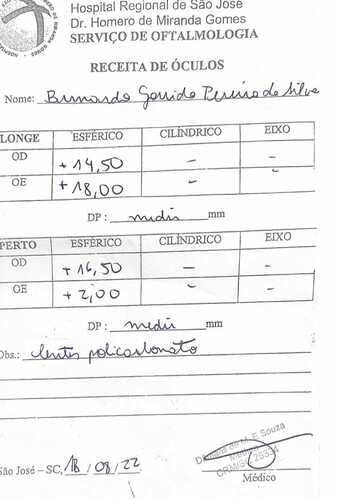 Hospital Regional de São José
Dr. Homero de Miranda Gomes
SERVIÇO DE OFTALMOLOGIA
RECEITA DE ÓCULOS
Nome: Bernardo Garrido Pereira da Silva
LONGE ESFÉRICO CILÍNDRICO EIXO
OD + 14,50 - -
OE + 18,00 - -
DP : medir mm
PERTO ESFÉRICO CILÍNDRICO EIXO
OD + 16,50 - -
OE + 2,00 - -
DP : medir mm
Obs.: lentes policarbonato
São José – SC, 18 / 08 / 22
de M. F. Souza
Médico